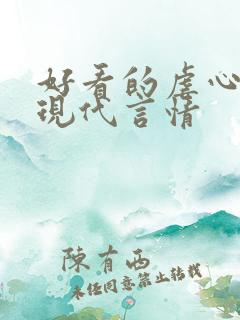 好看的虐心
現代言情
陳有西
未经同意禁止转载